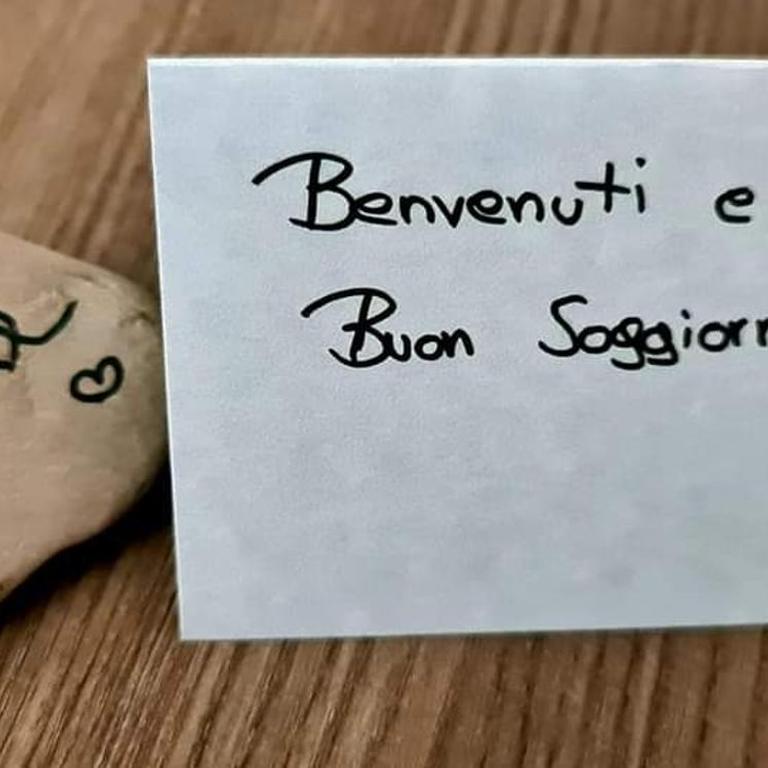 Benvenuti e
Buon Soggiorn